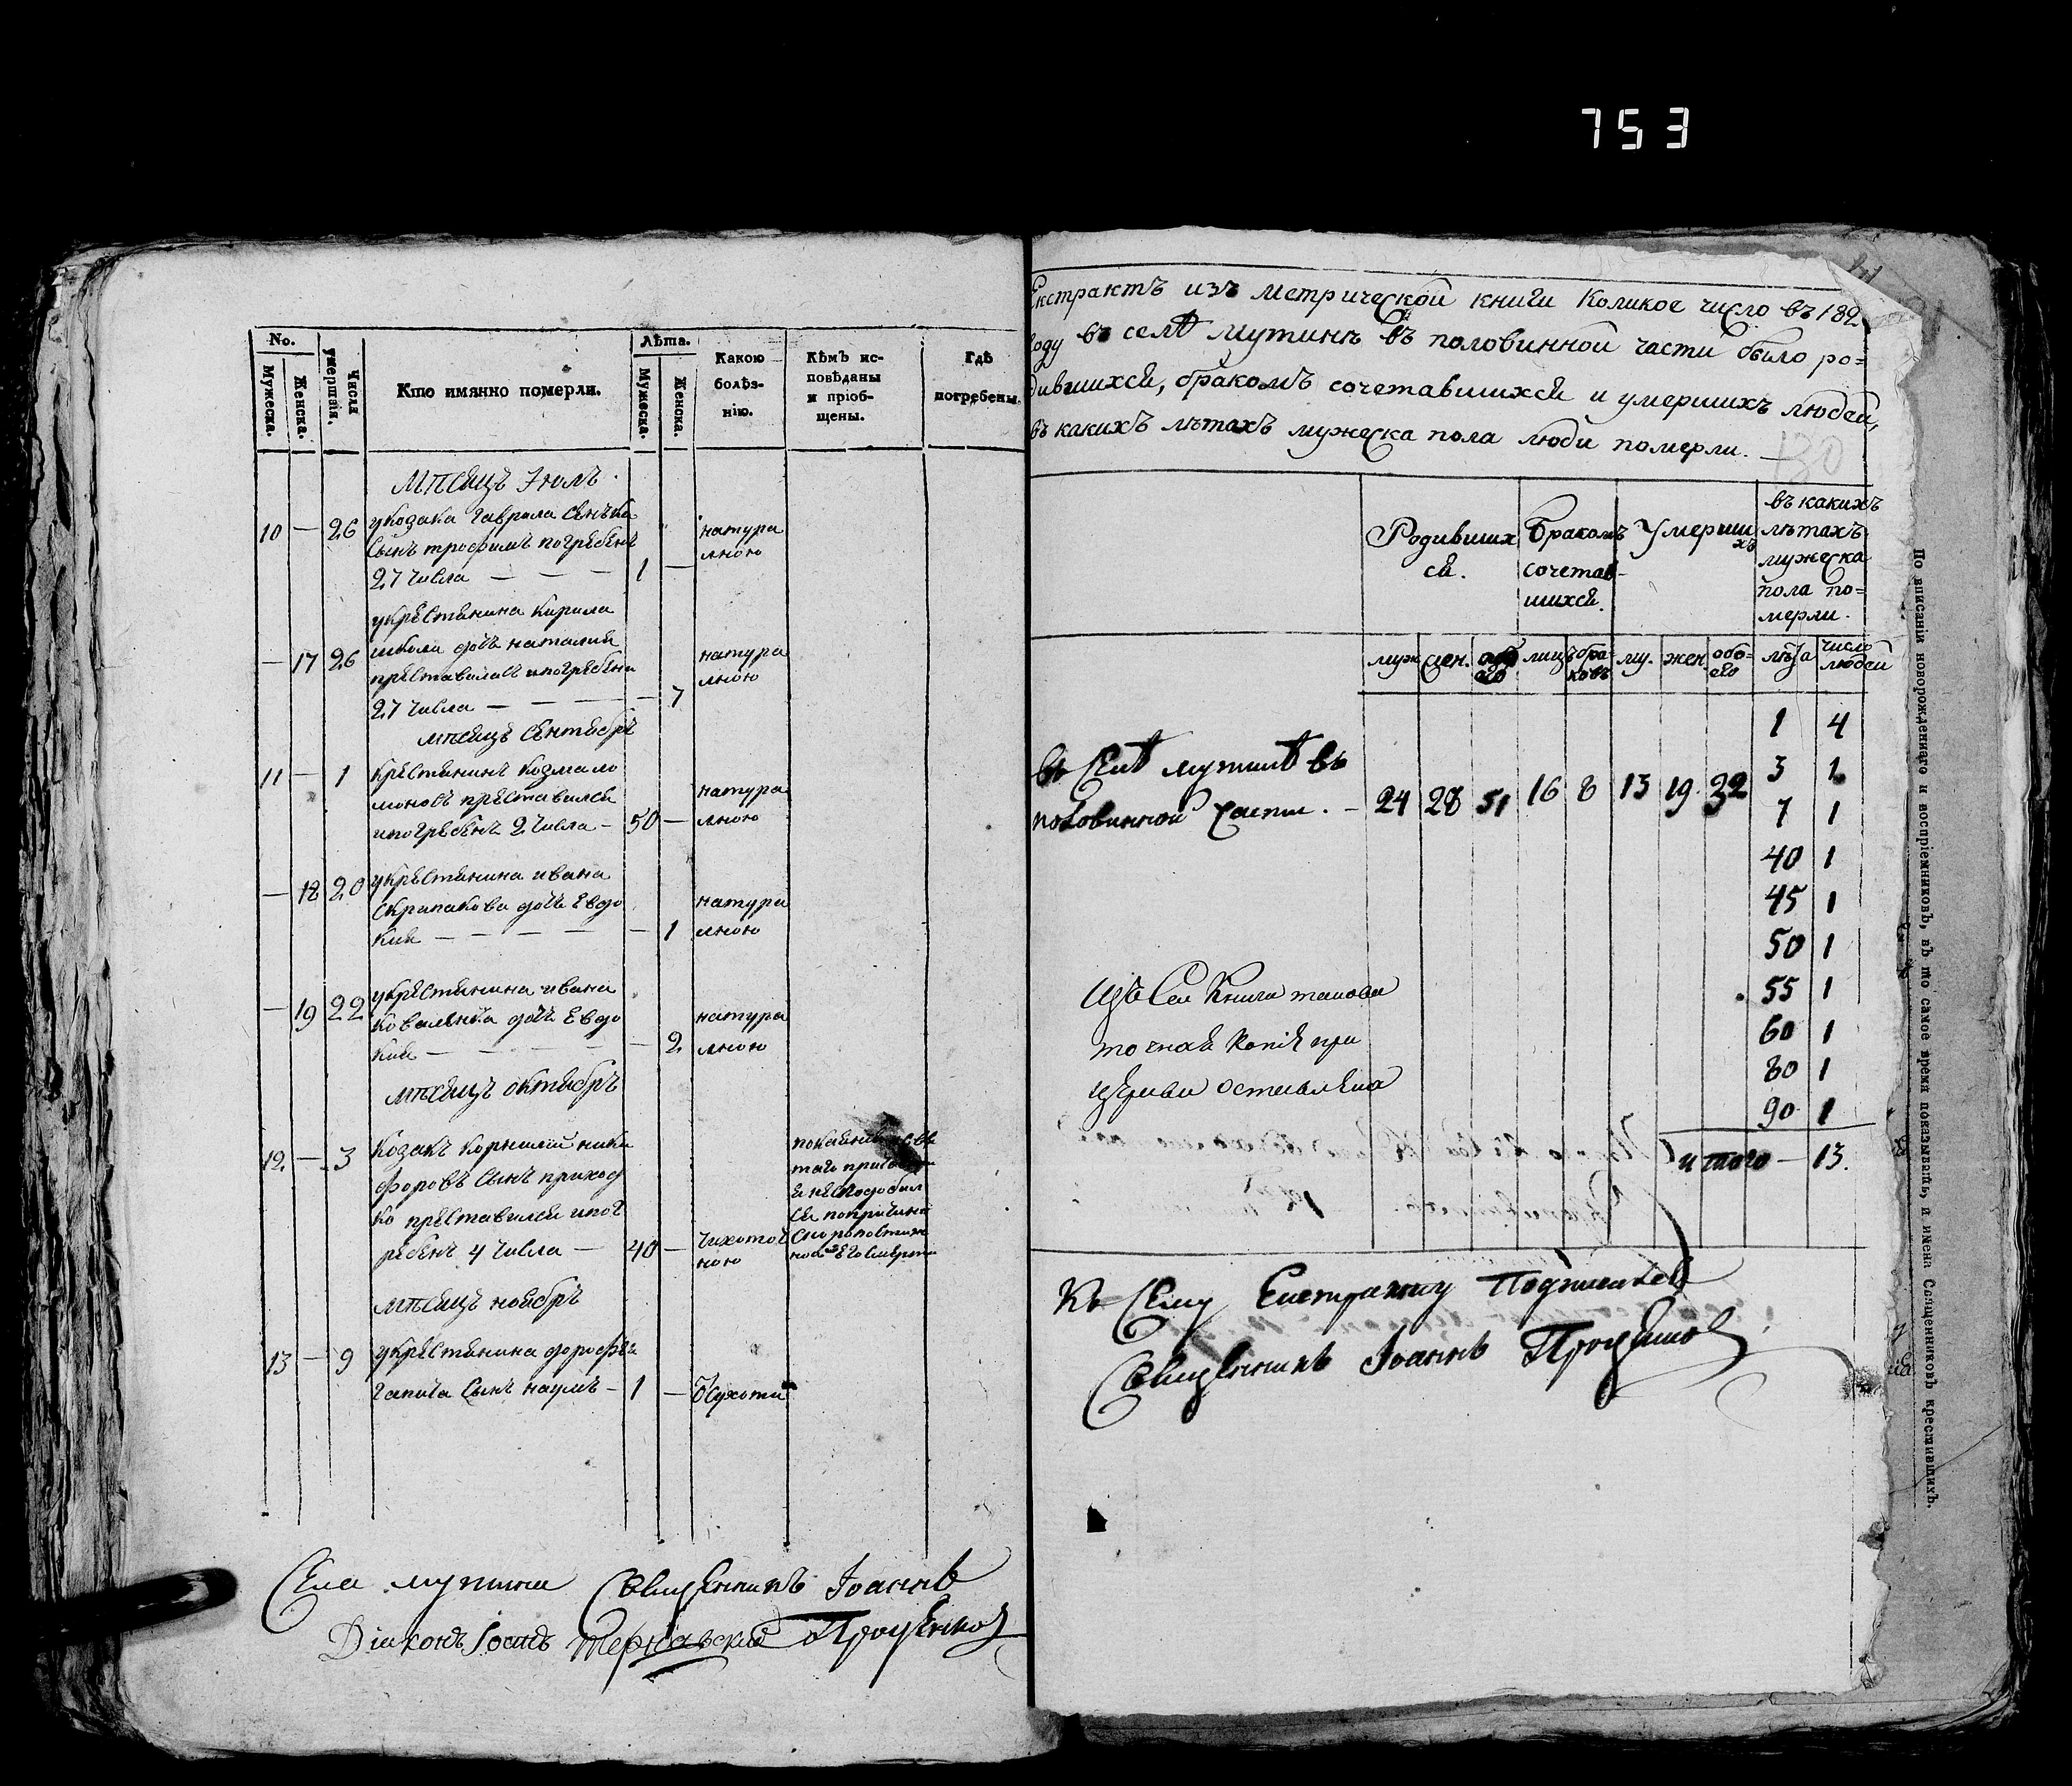 753
No.
Мужеска.
Женска.
Числа умершія.
Кто имянно померли.
Лѣта.
Мужеска.
Женска.
Какою болѣз-
нію.
Кѣмъ ис-
повѣданы
и пріоб-
щены.
Гдѣ
погребены.
мѣсяцъ Іюль
10 — 26 у козака гаврила сенька
сынъ трофимъ погребенъ
27 числа — — — 1 —
натура
лною
у крестянина кирила
— 17 26 дочь наталия
преставилась и погребена
27 числа — — — — 7
натура
лною
мѣсяцъ сентябрь
11 — 1 крестянинъ козма
преставился
и погребенъ 2 числа — 50 —
натура
лною
— 18 20 у крестянина ивана
скрипакова дочь евдо
кия — — — — — 1
натура
лною
— 19 22 у крестянина ивана
коваленка дочь евдо
кия — — — — — 2
натура
лною
мѣсяцъ октябрь
12 — 3 козакъ корнилий ники
форовъ сынъ приход
ко преставился и пог
ребенъ 4 числа — 40 —
чихоточ
ною
мѣсяцъ ноябрь
13 — 9 у крестянина дорофея
гапича сынъ наумъ — 1 —
Села мутина священникъ Іоаннъ
Проценков
Діаконъ Тернавский
Екстрактъ изъ метрической книги коликое число въ 182
году въ селѣ мутинѣ въ половинной части было ро=
дившихся, бракомъ сочетавшихся и умершихъ людей,
въ какихъ лѣтахъ мужеска пола люди померли. —
130
Родивших
ся.
бракомъ
сочетав-
шихся.
Умерши
хъ
въ какихъ
лѣтахъ
мужеска
пола по=
мерли.
муж. жен. обо
его лицъ бра
ковъ му. жен. обо=
его лѣта число
людей
въ селѣ мутинѣ въ
половинной части. — 24 28 51 16 8 13 19 32
1 4
3 1
7 1
40 1
45 1
50 1
55 1
60 1
80 1
90 1
итого — 13.
изъ сей книги такова
точная копія при
церкви оставлена
Къ сему Екстракту подписался
священникъ Іоаннъ Проценков
По вписаніи новорожденнаго и воспріемниковъ, въ то самое время показывать, и имена Священниковъ крестившихъ.